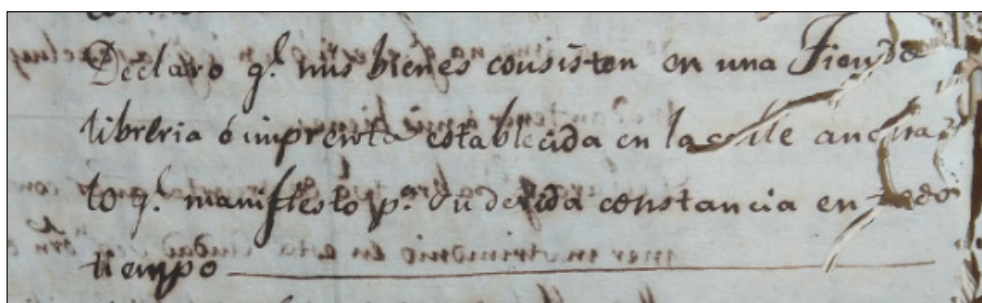 Declaro q.e mis bienes consisten en una Tienda
libreria ó imprenta establecida en la calle ancha
lo q.e manifiesto p.a su devida constancia en todo
tiempo